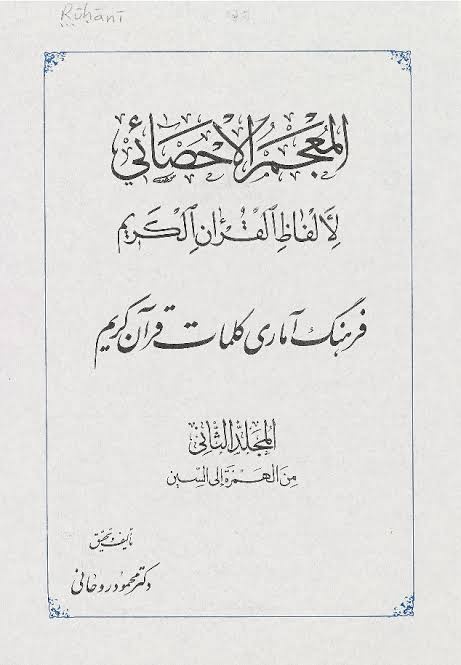 Rūḥānī
المُعْجَمُ الإحْصَائي
لِأَلْفَاظِ الْقُرْآنِ الْكَرِيمِ
فرهنگ آماری کلمات قرآن کریم
المُجَلَّدُ الثَّانِي
مِنَ الهَمْزَةِ إِلَى السِّين
تألیف و تحقیق
دکتر محمود روحانی